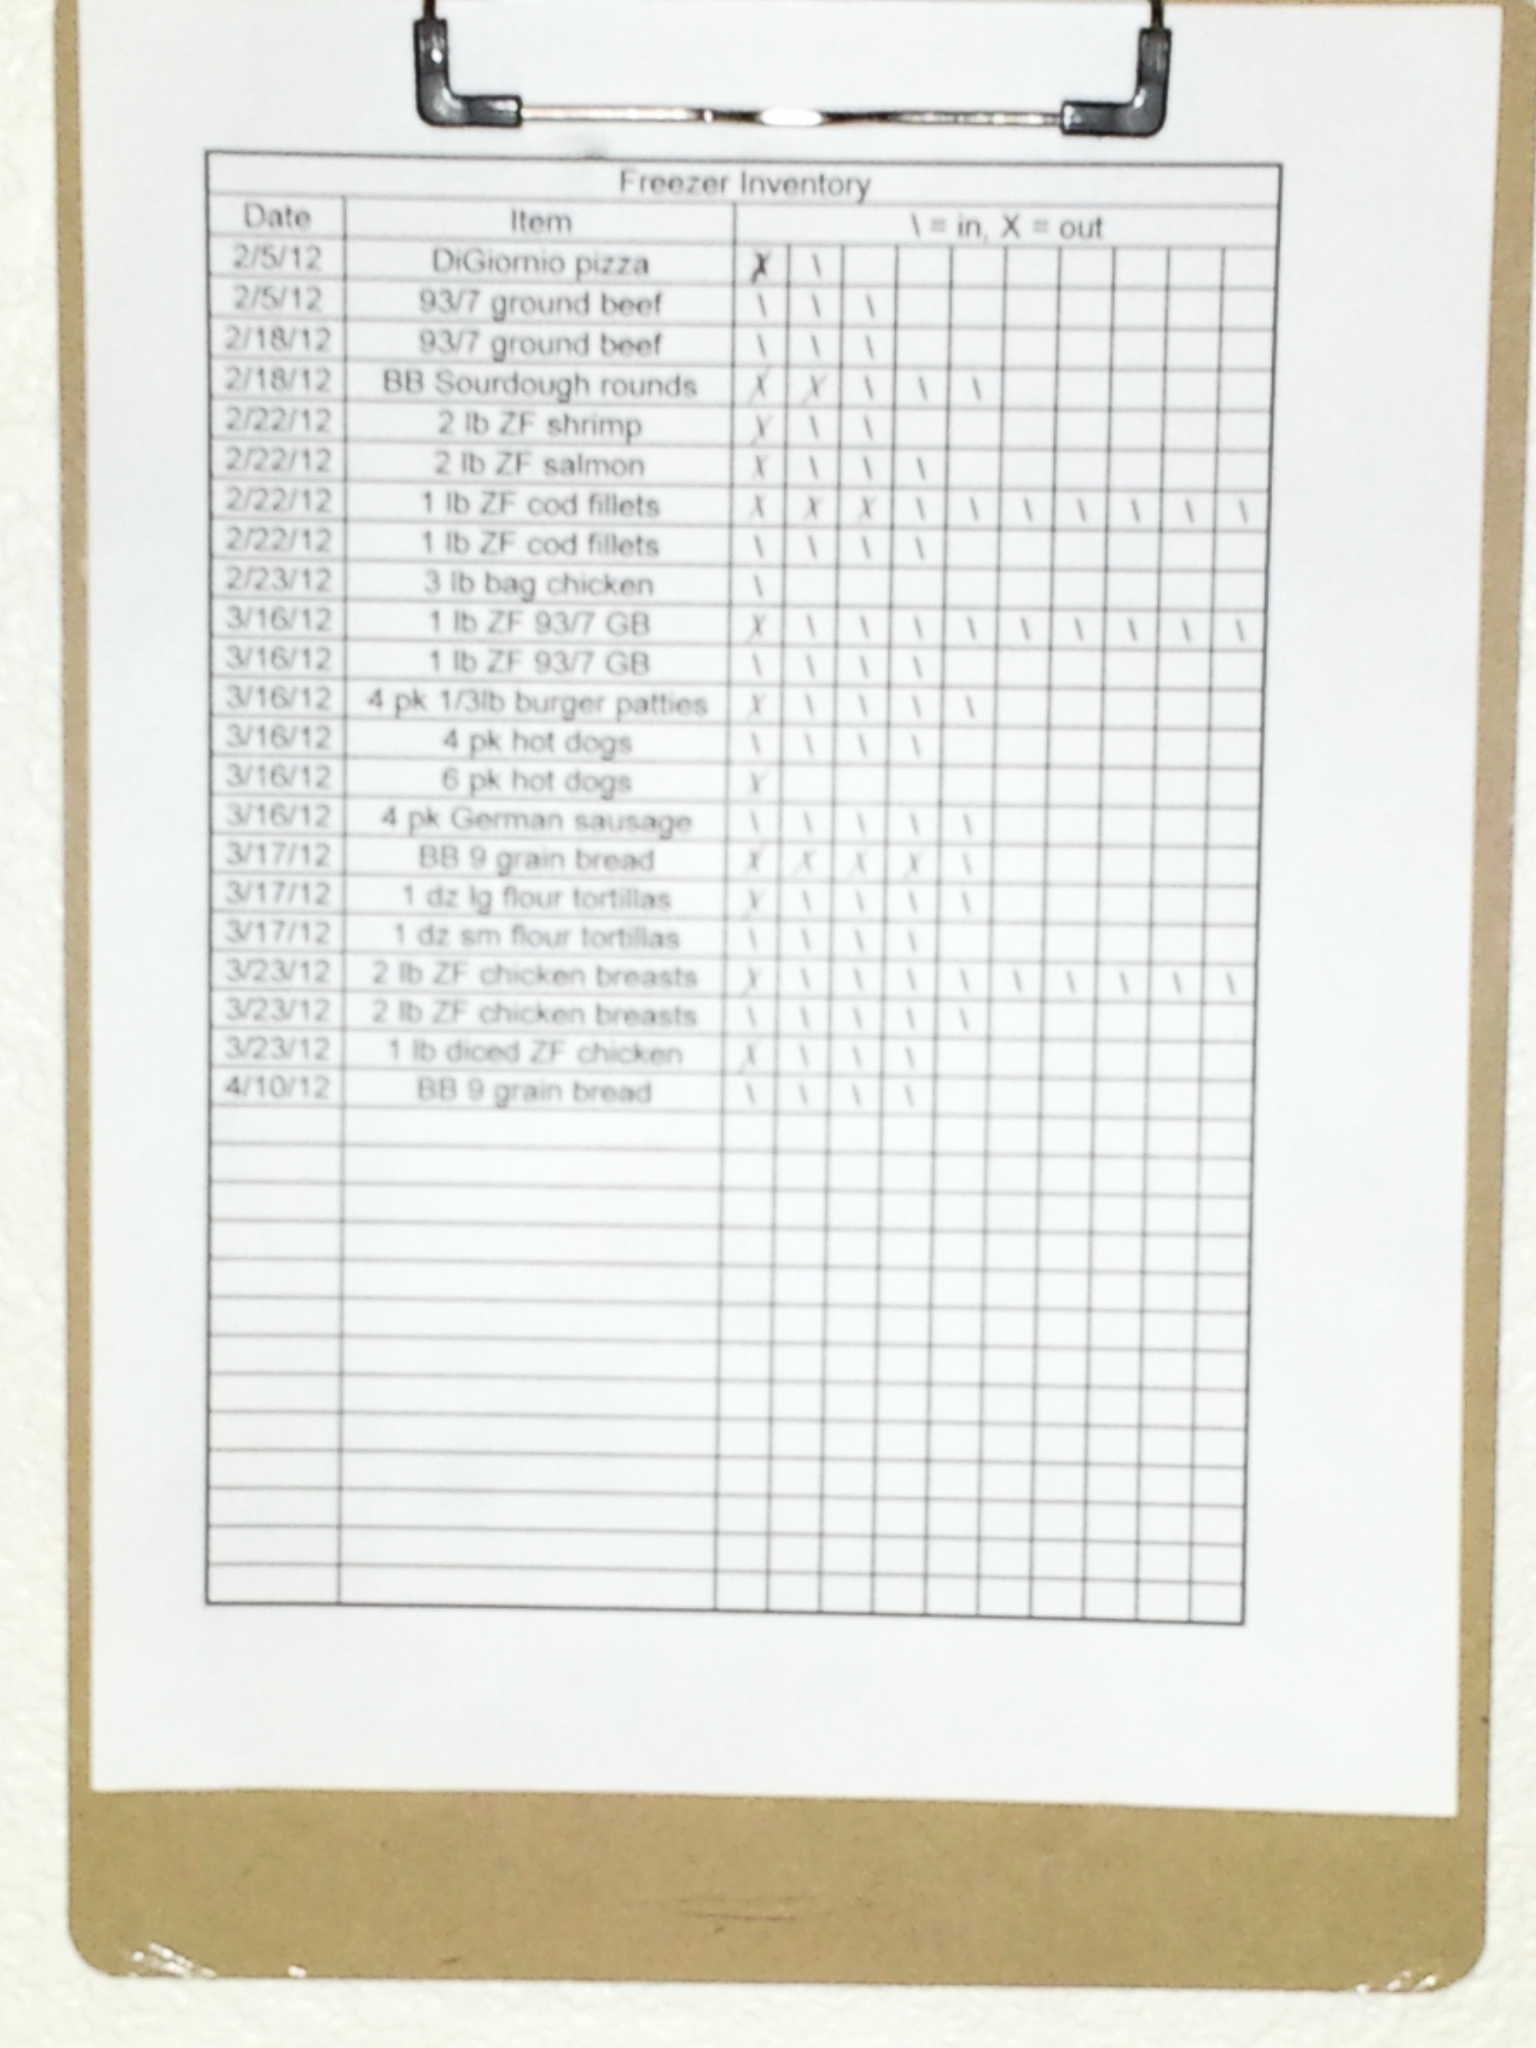 Freezer Inventory
Date Item \ = in, X = out
2/5/12 DiGiornio pizza X \
2/5/12 93/7 ground beef \ \ \
2/18/12 93/7 ground beef \ \ \
2/18/12 BB Sourdough rounds X X \ \ \
2/22/12 2 lb ZF shrimp X \ \
2/22/12 2 lb ZF salmon X \ \ \
2/22/12 1 lb ZF cod fillets X X X \ \ \ \ \ \ \
2/22/12 1 lb ZF cod fillets \ \ \ \
2/23/12 3 lb bag chicken \
3/16/12 1 lb ZF 93/7 GB X \ \ \ \ \ \ \ \ \
3/16/12 1 lb ZF 93/7 GB \ \ \ \
3/16/12 4 pk 1/3lb burger patties X \ \ \ \
3/16/12 4 pk hot dogs \ \ \ \
3/16/12 6 pk hot dogs X
3/16/12 4 pk German sausage \ \ \ \ \
3/17/12 BB 9 grain bread X X X X \
3/17/12 1 dz lg flour tortillas X \ \ \ \
3/17/12 1 dz sm flour tortillas \ \ \ \
3/23/12 2 lb ZF chicken breasts X \ \ \ \ \ \ \ \ \
3/23/12 2 lb ZF chicken breasts \ \ \ \ \
3/23/12 1 lb diced ZF chicken X \ \ \
4/10/12 BB 9 grain bread \ \ \ \